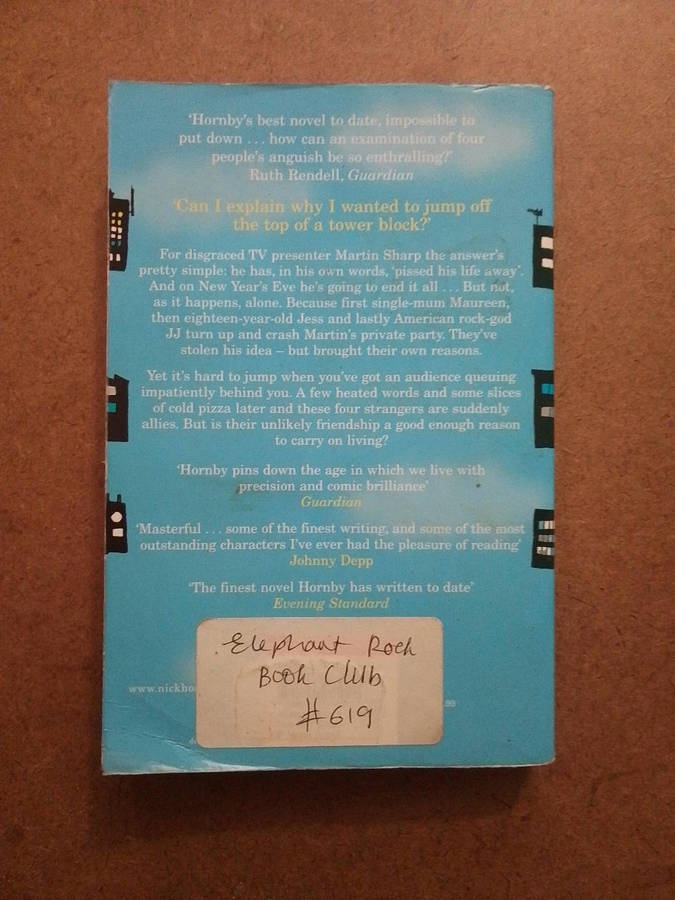 ‘Hornby’s best novel to date, impossible to
put down . . . how can an examination of four
people’s anguish be so enthralling?’
Ruth Rendell, Guardian
‘Can I explain why I wanted to jump off
the top of a tower block?’
For disgraced TV presenter Martin Sharp the answer’s
pretty simple: he has, in his own words, ‘pissed his life away’.
And on New Year’s Eve he’s going to end it all . . . But not,
as it happens, alone. Because first single-mum Maureen,
then eighteen-year-old Jess and lastly American rock-god
JJ turn up and crash Martin’s private party. They’ve
stolen his idea – but brought their own reasons.
Yet it’s hard to jump when you’ve got an audience queuing
impatiently behind you. A few heated words and some slices
of cold pizza later and these four strangers are suddenly
allies. But is their unlikely friendship a good enough reason
to carry on living?
‘Hornby pins down the age in which we live with
precision and comic brilliance’
Guardian
‘Masterful . . . some of the finest writing, and some of the most
outstanding characters I’ve ever had the pleasure of reading’
Johnny Depp
‘The finest novel Hornby has written to date’
Evening Standard
Elephant Rock
Book Club
#619
www.nickho
.99